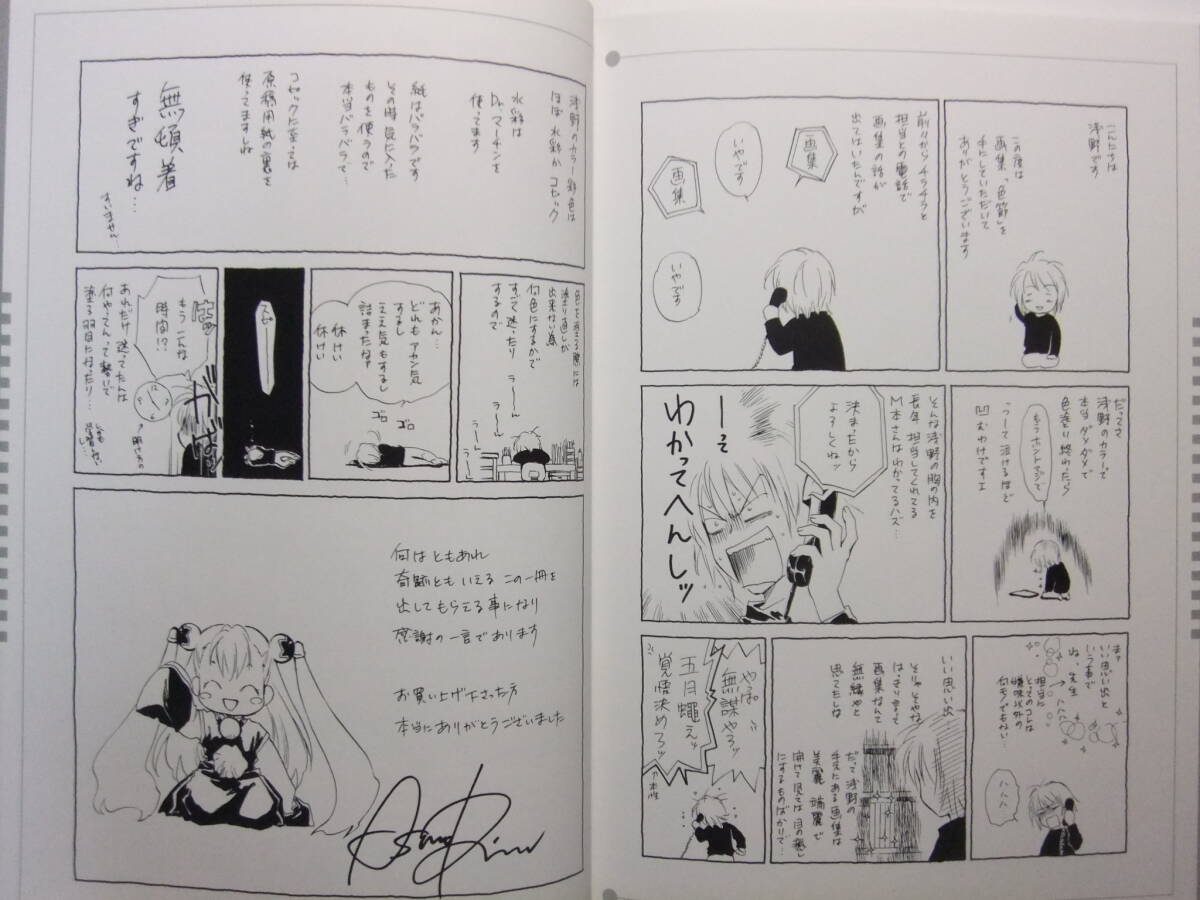 こんにちは
浅野です
この度は
画集「色節」を
手にしていただいて
ありがとうございます
前々からチラチラと
担当との電話で
画集の話が
出てはいたんですが
画集
いやです
画集
いやです
だってさ
浅野のカラーって
本当ダメダメで
色塗り終わったら
もうホントマジで
つーて泣けるほど
凹むわけですよ
そんな浅野の胸の内を
長年担当してくれてる
M本さんはわかってるハズ…
決まったから
よろしくねッ
ーーそ
わかってへんしッ
まァ
いい思い出と
いう事で
ね、先生
ハハハ
担当に
とってのコトは
嫌味以外の
何モノでもない…
ハハハ
いい思い出
そりゃそやな
はっきり言って
画集なんて
無縁やと
思てたしな
だって浅野の
手元にある画集は
美麗 端麗で
開けて見ては目の癒し
にするものばかりで…
やっぱ
無謀やろッ
五月蠅えッ
覚悟決めろッ
↑本性
浅野のカラー彩色は
ほぼ水彩かコピック
水彩は
Dr.マーチンを
使ってます
紙はバラバラです
その時気に入った
ものを使うので
本当バラバラで…
コピックに至っては
原稿用紙の裏を
使ってますしね
無頓着
すぎですね…
すいません…
色を塗る際には
塗り直しが
出来ない為
何色にするかで
すごく迷ったり
するので
うーーん
うーん
うーん
あかん…
どれもアカン気
するし
ええ気もするし
詰まったな?
休けい
休けい
ゴロ
ゴロ
スピー
はっ
もうこんな
時間!?
ガバッ
あれだけ迷ってたんは
何やってんって勢いで
塗る羽目になったり…
何はともあれ
奇跡ともいえるこの一冊を
出してもらえる事になり
感謝の一言であります
お買い上げ下さった方
本当にありがとうございました